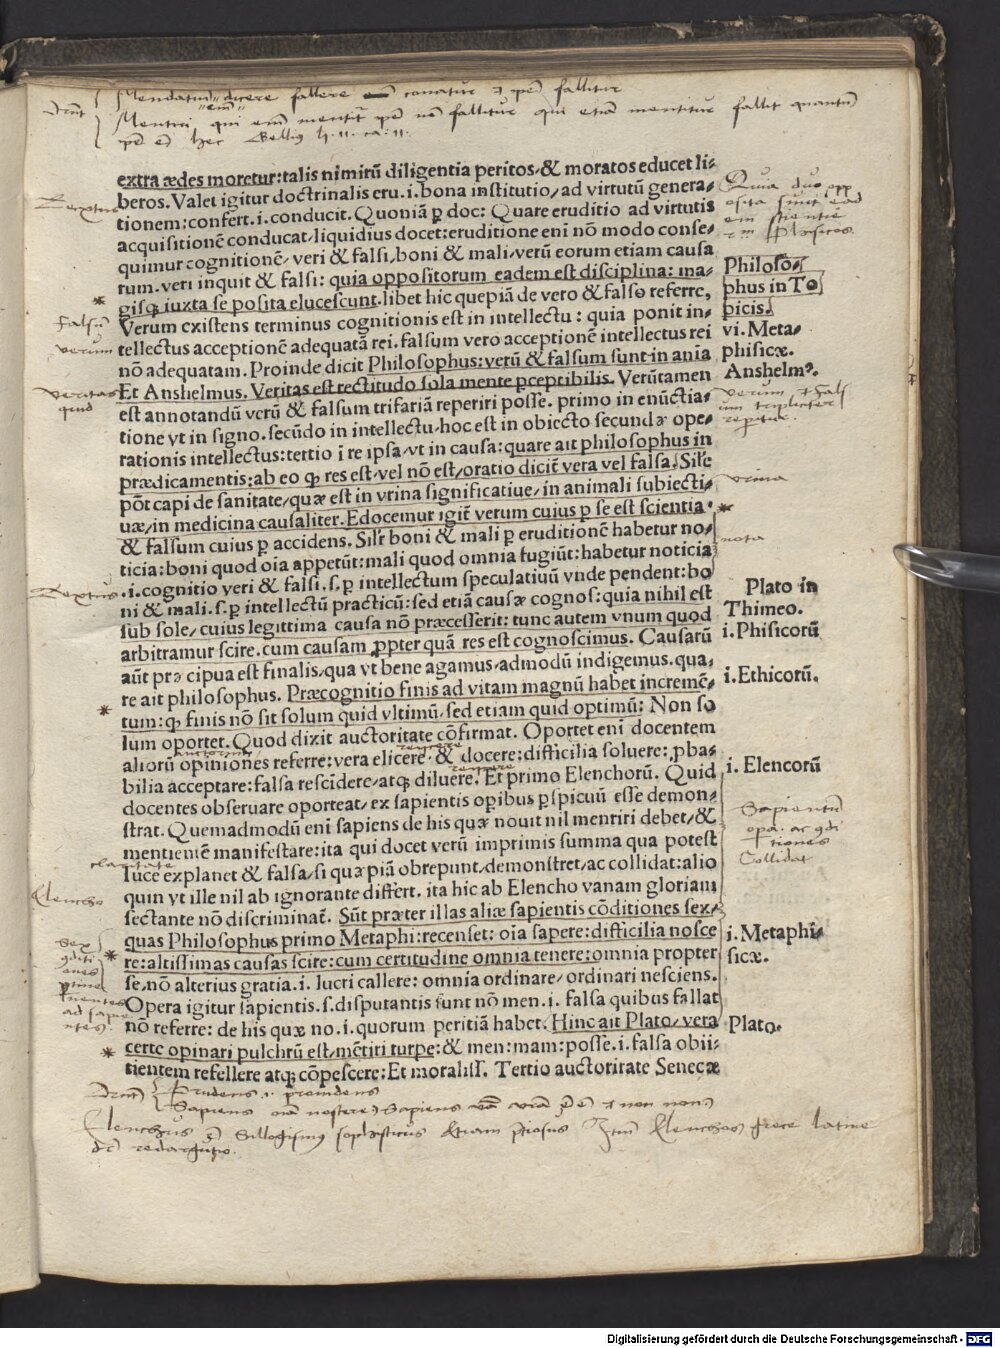 Mendatium dicere fallere conatur & ipse fallitur
Mentiri qui mentitur ipse non fallitur qui etiam mentitur fallit quantum
hec Gellius li. 11. ca: 11.
extra ædes moretur: talis nimirū diligentia peritos/& moratos educet li⸗
beros. Valet igitur doctrinalis eru. i. bona institutio/ad virtutū genera⸗
tionem: confert. i. conducit. Quoniā ꝑ doc: Quare eruditio ad virtutis
acquisitionē conducat/liquidius docet: eruditione eni nō modo conse⸗
quimur cognitionē/ veri & falsi/boni & mali/verū eorum etiam causa
rum. veri inquit & falsi: quia oppositorum eadem est disciplina: ma⸗
gisq; iuxta se posita elucescunt. libet hic quepiā de vero & falso referre,
Verum existens terminus cognitionis est in intellectu: quia ponit in⸗
tellectus acceptionē adequatā rei. falsum vero acceptionē intellectus rei
nō adequatam. Proinde dicit Philosophus: verū & falsum sunt in anīa
Et Anshelmus. Veritas est rectitudo sola mente ꝑceptibilis. Verūtamen
est annotandū verū & falsum trifariā reperiri posse. primo in enūctia⸗
tione vt in signo. secūdo in intellectu/hoc est in obiecto secundæ ope⸗
rationis intellectus: tertio ī re ipsa/vt in causa: quare ait philosophus in
prædicamentis: ab eo q; res est/vel nō est/oratio dicit̄ vera vel falsa. Silȓe
pōt capi de sanitate/quæ est in vrina significatiue/in animali subiecti⸗
uæ/in medicina causaliter. Edocemur igit̄ verum cuius ꝑ se est scientia
& falsum cuius ꝑ accidens. Silȓ boni & mali ꝑ eruditionē habetur no⸗
ticia: boni quod oīa appetūt: mali quod omnia fugiūt: habetur noticia
.i. cognitio veri & falsi. s. ꝑ intellectum speculatiuū vnde pendent: bo
ni & mali. s. ꝑ intellectū practicū: sed etiā causæ cognos: quia nihil est
sub sole/ cuius legittima causa nō præcesserit: tunc autem vnum quod
arbitramur scire. cum causam ꝓpter quā res est cognoscimus. Causarū
aūt præcipua est finalis/qua vt bene agamus/admodū indigemus. qua⸗
re ait philosophus. Præcognitio finis ad vitam magnū habet incremē⸗
tum: q; finis nō sit solum quid vltimū/sed etiam quid optimū: Non so
lum oportet. Quod dixit auctoritate cōfirmat. Oportet enī docentem
aliorū opiniones referre: vera elicere & docere: difficilia soluere: ꝓba⸗
bilia acceptare: falsa rescidere/atq; diluere. Et primo Elenchorū. Quid
docentes obseruare oporteat/ex sapientis opibus ꝑspicuū esse demon⸗
strat. Quemadmodū enī sapiens de his quæ nouit nil mentiri debet/&
mentientē manifestare: ita qui docet verū imprimis summa qua potest
luce explanet & falsa/si quæpiā obrepunt/demonstret/ac collidat: alio
quin vt ille nil ab ignorante differt. ita hic ab Elencho vanam gloriam
sectante nō discriminat̄. Sūt præter illas aliæ sapientis cōditiones sex/
quas Philosophus primo Metaphi: recenset: oīa sapere: difficilia nosce
re: altissimas causas scire: cum certitudine omnia tenere: omnia propter
se/nō alterius gratia. i. lucri callere: omnia ordinare/ordinari nesciens.
Opera igitur sapientis. s. disputantis sunt nō men. i. falsa quibus fallat
nō referre: de his quæ no. i. quorum peritiā habet. Hinc ait Plato/vera
certe opinari pulchrū est/mētiri turpe: & men: mam: posse. i. falsa obii⸗
tientem refellere atq; cōpescere: Et moralis̄. Tertio auctoritate Senecæ
Textus
Falsum
verum
veritas
quid
Textus
claritate
Elencho
Sex
ad sapie
ntes
Quia duo opp
osita sunt ead
em scientie
Philoso⸗
phus in To
picis.
vi. Meta⸗
phisicæ.
Anshelmꝰ.
verum & fals
um tripliciter
reperitur.
vrina
nota
Plato in
Thimeo.
i. Phisicorū
i. Ethicorū.
i. Elencorū
Sapientum
opa. ac 9di
tiones
Collidat
i. Metaphi⸗
sicæ.
Plato.
Prudens providens
Sapiens
Elenchus est Sillogismus sophisticus Elenchos grece latine
redargutio.
Digitalisierung gefördert durch die Deutsche Forschungsgemeinschaft - DFG